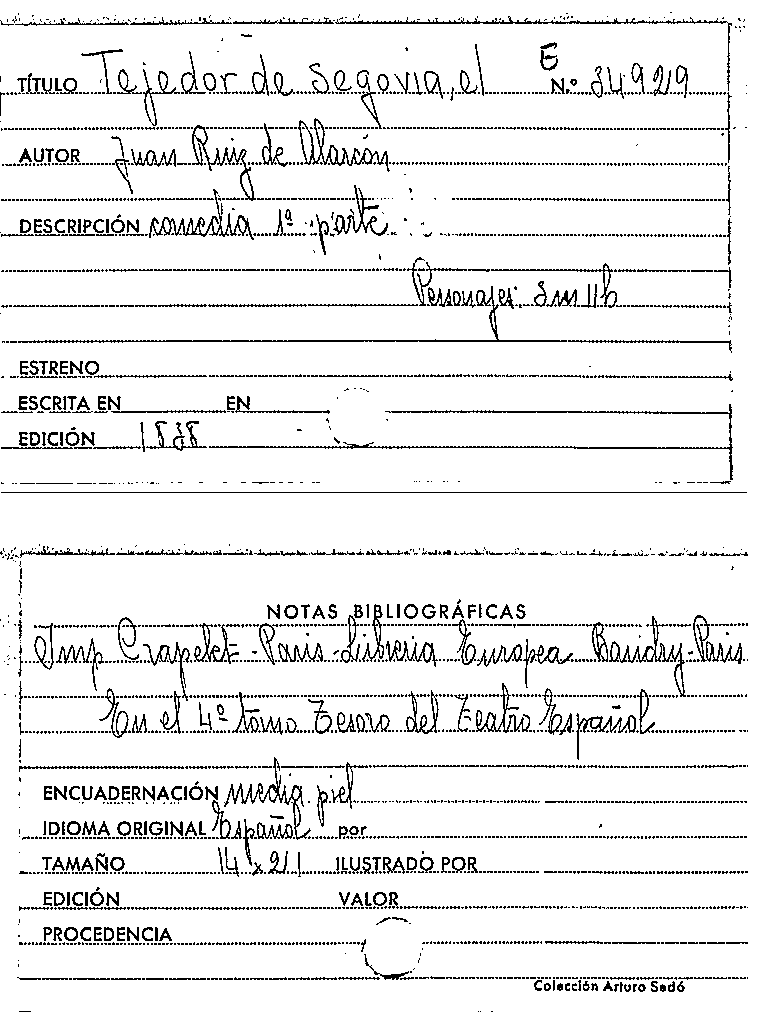 TÍTULO Tejedor de Segovia, el E N.º 34929
AUTOR Juan Ruiz de Alarcón
DESCRIPCIÓN comedia 1ª parte
Personajes: 3m 11h
ESTRENO
ESCRITA EN EN
EDICIÓN 1838
NOTAS BIBLIOGRÁFICAS
Imp Crapelet - Paris - Libreria Europea Baudry - Paris
En el 4º tomo Tesoro del Teatro Español
ENCUADERNACIÓN media piel
IDIOMA ORIGINAL Español por
TAMAÑO 14 x 21 ILUSTRADO POR
EDICIÓN VALOR
PROCEDENCIA
Colección Arturo Sedó